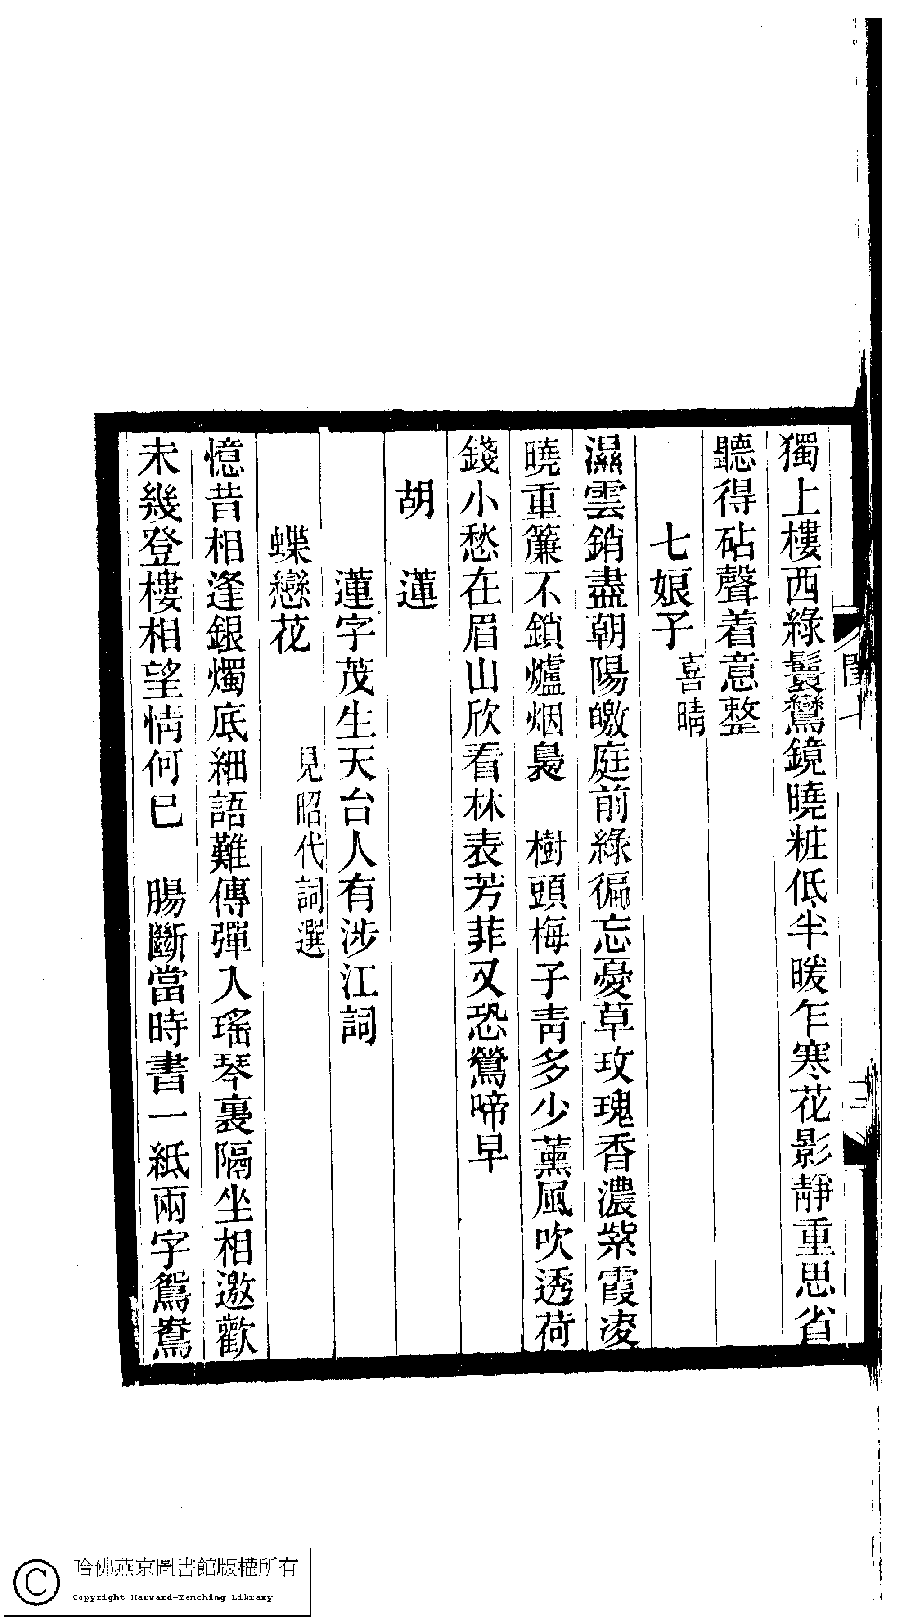 獨上樓西綠鬟鸞鏡曉粧低半暖乍寒花影靜重思省
聽得砧聲着意整
七娘子喜晴
濕雲銷盡朝陽皦庭前綠徧忘憂草玫瑰香濃紫霞凌
曉重簾不鎖爐烟裊　樹頭梅子靑多少薰風吹透荷
錢小愁在眉山欣看林表芳菲又恐鶯啼早
胡蓮
蓮字茂生天台人有涉江詞
蝶戀花　見昭代詞選
憶昔相逢銀燭底細語難傳彈入瑤琴裏隔坐相邀歡
未幾登樓相望情何已　腸斷當時書一紙兩字鴛鴦
三
哈佛燕京圖書館版權所有
Copyright Harvard-Yenching Library